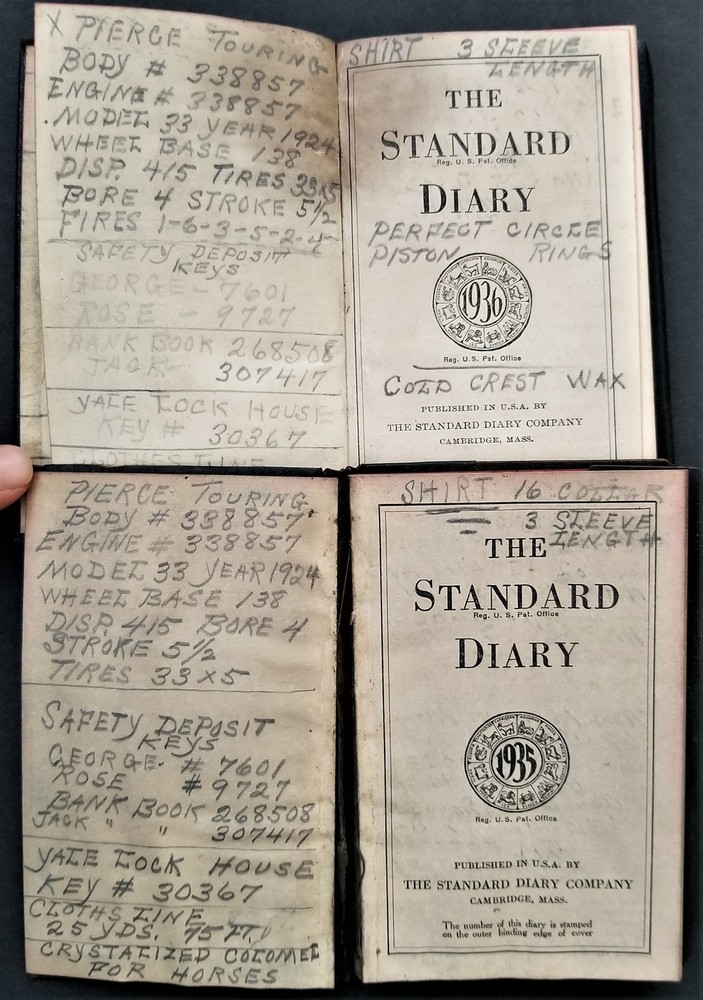 X PIERCE TOURING
BODY # 338857
ENGINE # 338857
MODEL 33 YEAR 1924
WHEEL BASE 138
DISP. 415 TIRES 33x5
BORE 4 STROKE 5 1/2
FIRES 1-6-3-5-2-4-
SAFETY DEPOSIT
KEYS
GEORGE - 7601
ROSE - 9727
BANK BOOK 268508
JACK 307417
YALE LOCK HOUSE
KEY # 30367
CLOTHES LINE
SHIRT 3 SLEEVE
LENGTH
THE
STANDARD
Reg. U. S. Pat. Office
DIARY
PERFECT CIRCLE
PISTON RINGS
1936
Reg. U.S. Pat. Office
COLD CREST WAX
PUBLISHED IN U.S.A. BY
THE STANDARD DIARY COMPANY
CAMBRIDGE, MASS.
PIERCE TOURING
BODY # 338857
ENGINE # 338857
MODEL 33 YEAR 1924
WHEEL BASE 138
DISP. 415 BORE 4
STROKE 5 1/2
TIRES 33x5
SAFETY DEPOSIT
KEYS
GEORGE # 7601
ROSE # 9727
BANK BOOK 268508
JACK " " 307417
YALE LOCK HOUSE
KEY # 30367
CLOTHS LINE
25 YDS. 75 FT.
CRYSTALIZED COLOMEL
FOR HORSES
SHIRT 16 COLLAR
3 SLEEVE
LENGTH
THE
STANDARD
Reg. U. S. Pat. Office
DIARY
1935
Reg. U.S. Pat. Office
PUBLISHED IN U.S.A. BY
THE STANDARD DIARY COMPANY
CAMBRIDGE, MASS.
The number of this diary is stamped
on the outer binding edge of cover